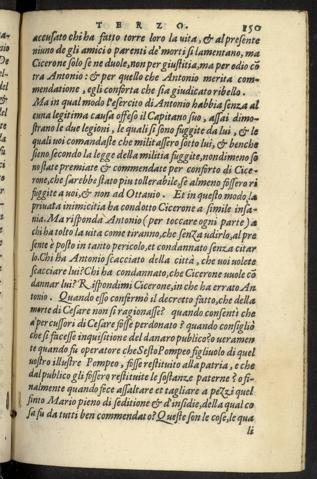 TERZO. 150
accusato chi ha fatto torre loro la uita, & al presente
niuno de gli amici o parenti de' morti si lamentano, ma
Cicerone solo se ne duole, non per giustitia, ma per odio cō
tra Antonio: & per quello che Antonio merita com
mendatione, egli conforta che sia giudicato ribello.
Ma in qual modo l'esercito di Antonio habbia senza al
cuna legitima causa offeso il Capitano suo, assai dimo
strano le due legioni, le quali si sono fuggite da lui, & le
quali uoi comandaste che militassero sotto lui, & benche
sieno secondo la legge della militia fuggite, nondimeno so
no state premiate & commendate per conforto di Cice-
rone, che sarebbe stato piu tollerabile, se almeno fossero ri
fuggite a uoi, & non ad Ottauio. Et in questo modo la
priuata inimicitia ha condotto Cicerone a simile insa-
nia. Ma risponda Antonio (per toccare ogni parte) a
chi ha tolto la uita come tiranno, che senza udirlo, al pre
sente è posto in tanto pericolo, et condannato senza citar
lo. Chi ha Antonio scacciato della città, che uoi uolete
scacciare lui? Chi ha condannato, che Cicerone uuole cō
dannar lui? Rispondimi Cicerone, in che ha errato An
tonio. Quando esso confirmò il decretto fatto, che della
morte di Cesare non si ragionasse? quando consentì che
a' percussori di Cesare fosse perdonato? quando consigliò
che si facesse inquisitione del danaro publico? o ueramen
te quando fu operatore che Sesto Pompeo figliuolo di quel
uostro illustre Pompeo, fosse restituito alla patria, e che
dal publico gli fossero restituite le sostanze paterne? o fi-
nalmente quando fece assaltare et tagliare a pezzi quel
finto Mario pieno di seditione & d'insidie, della qual co
sa fu da tutti ben commendato? Queste son le cose, le qua
li